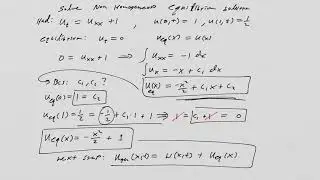 Solve Non Homogenous Equilibrium solution
Heat: u_t = u_xx + 1 , u(0,t) = 1, u(1,t) = 1/2
Equilibrium: u_t = 0 u_eq(x) = u(x)
0 = u_xx + 1 ⇒ ∫ u_xx = ∫ -1 dx
∫ u_x = ∫ -x + c_1 dx
BCs: c_1, c_2 ? u(x)_eq = -x²/2 + c_1 x + c_2
u_eq(0) = 1 = c_2
u_eq(1) = 1/2 = -1/2 + c_1 · 1 + 1 ⇒ 1 = c_1 + 1 = 0
u_eq(x) = -x²/2 + 1
next step: u_gen(x,t) = w(x,t) + u_eq(x)